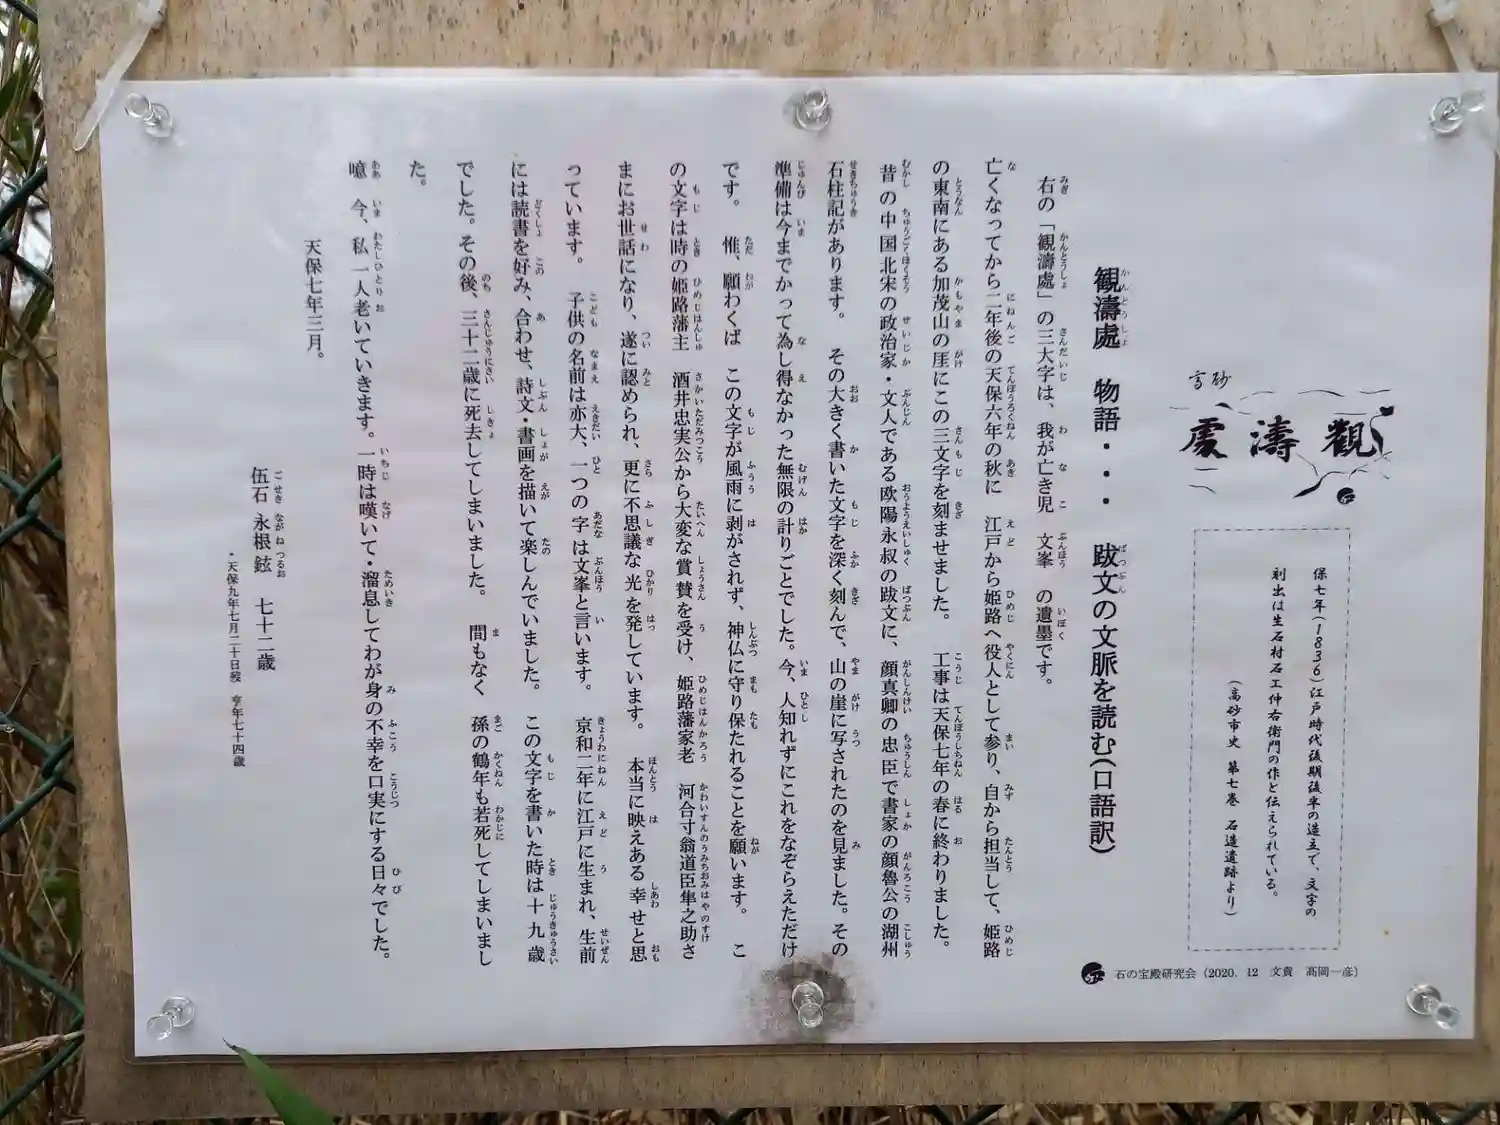 高砂
觀濤處
保七年(1836)江戸時代後期後半の造立で、文字の
刻出は生石村石工仲右衛門の作と伝えられている。
(高砂市史 第七巻 石造遺跡より)
石の宝殿研究会(2020. 12 文責 髙岡一彦)
観濤處 物語・・・ 跋文の文脈を読む(口語訳)
右の「観濤處」の三大字は、我が亡き児 文峯 の遺墨です。
亡くなってから二年後の天保六年の秋に 江戸から姫路へ役人として参り、自から担当して、姫路
の東南にある加茂山の崖にこの三文字を刻ませました。 工事は天保七年の春に終わりました。
昔の中国北宋の政治家・文人である欧陽永叔の跋文に、顔真卿の忠臣で書家の顔魯公の湖州
石柱記があります。 その大きく書いた文字を深く刻んで、山の崖に写されたのを見ました。その
準備は今までかって為し得なかった無限の計りごとでした。今、人知れずにこれをなぞらえただけ
です。 惟、願わくば この文字が風雨に剥がされず、神仏に守り保たれることを願います。 こ
の文字は時の姫路藩主 酒井忠実公から大変な賞賛を受け、姫路藩家老 河合寸翁道臣隼之助さ
まにお世話になり、遂に認められ、更に不思議な光を発しています。 本当に映えある幸せと思
っています。 子供の名前は亦大、一つの字は文峯と言います。 京和二年に江戸に生まれ、生前
には読書を好み、合わせ、詩文・書画を描いて楽しんでいました。 この文字を書いた時は十九歳
でした。その後、三十二歳に死去してしまいました。 間もなく 孫の鶴年も若死してしまいまし
た。
噫 今、私一人老いていきます。一時は嘆いて・溜息してわが身の不幸を口実にする日々でした。
天保七年三月。
伍石 永根鉉 七十二歳
・天保九年七月二十日歿 享年七十四歳